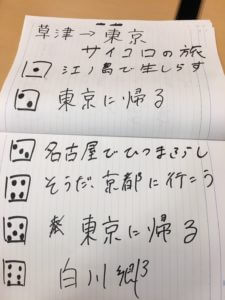 草津→東京
サイコロの旅
江ノ島で生しらす
東京に帰る
名古屋でひつまぶし
そうだ、京都に行こう
東京に帰る
白川郷